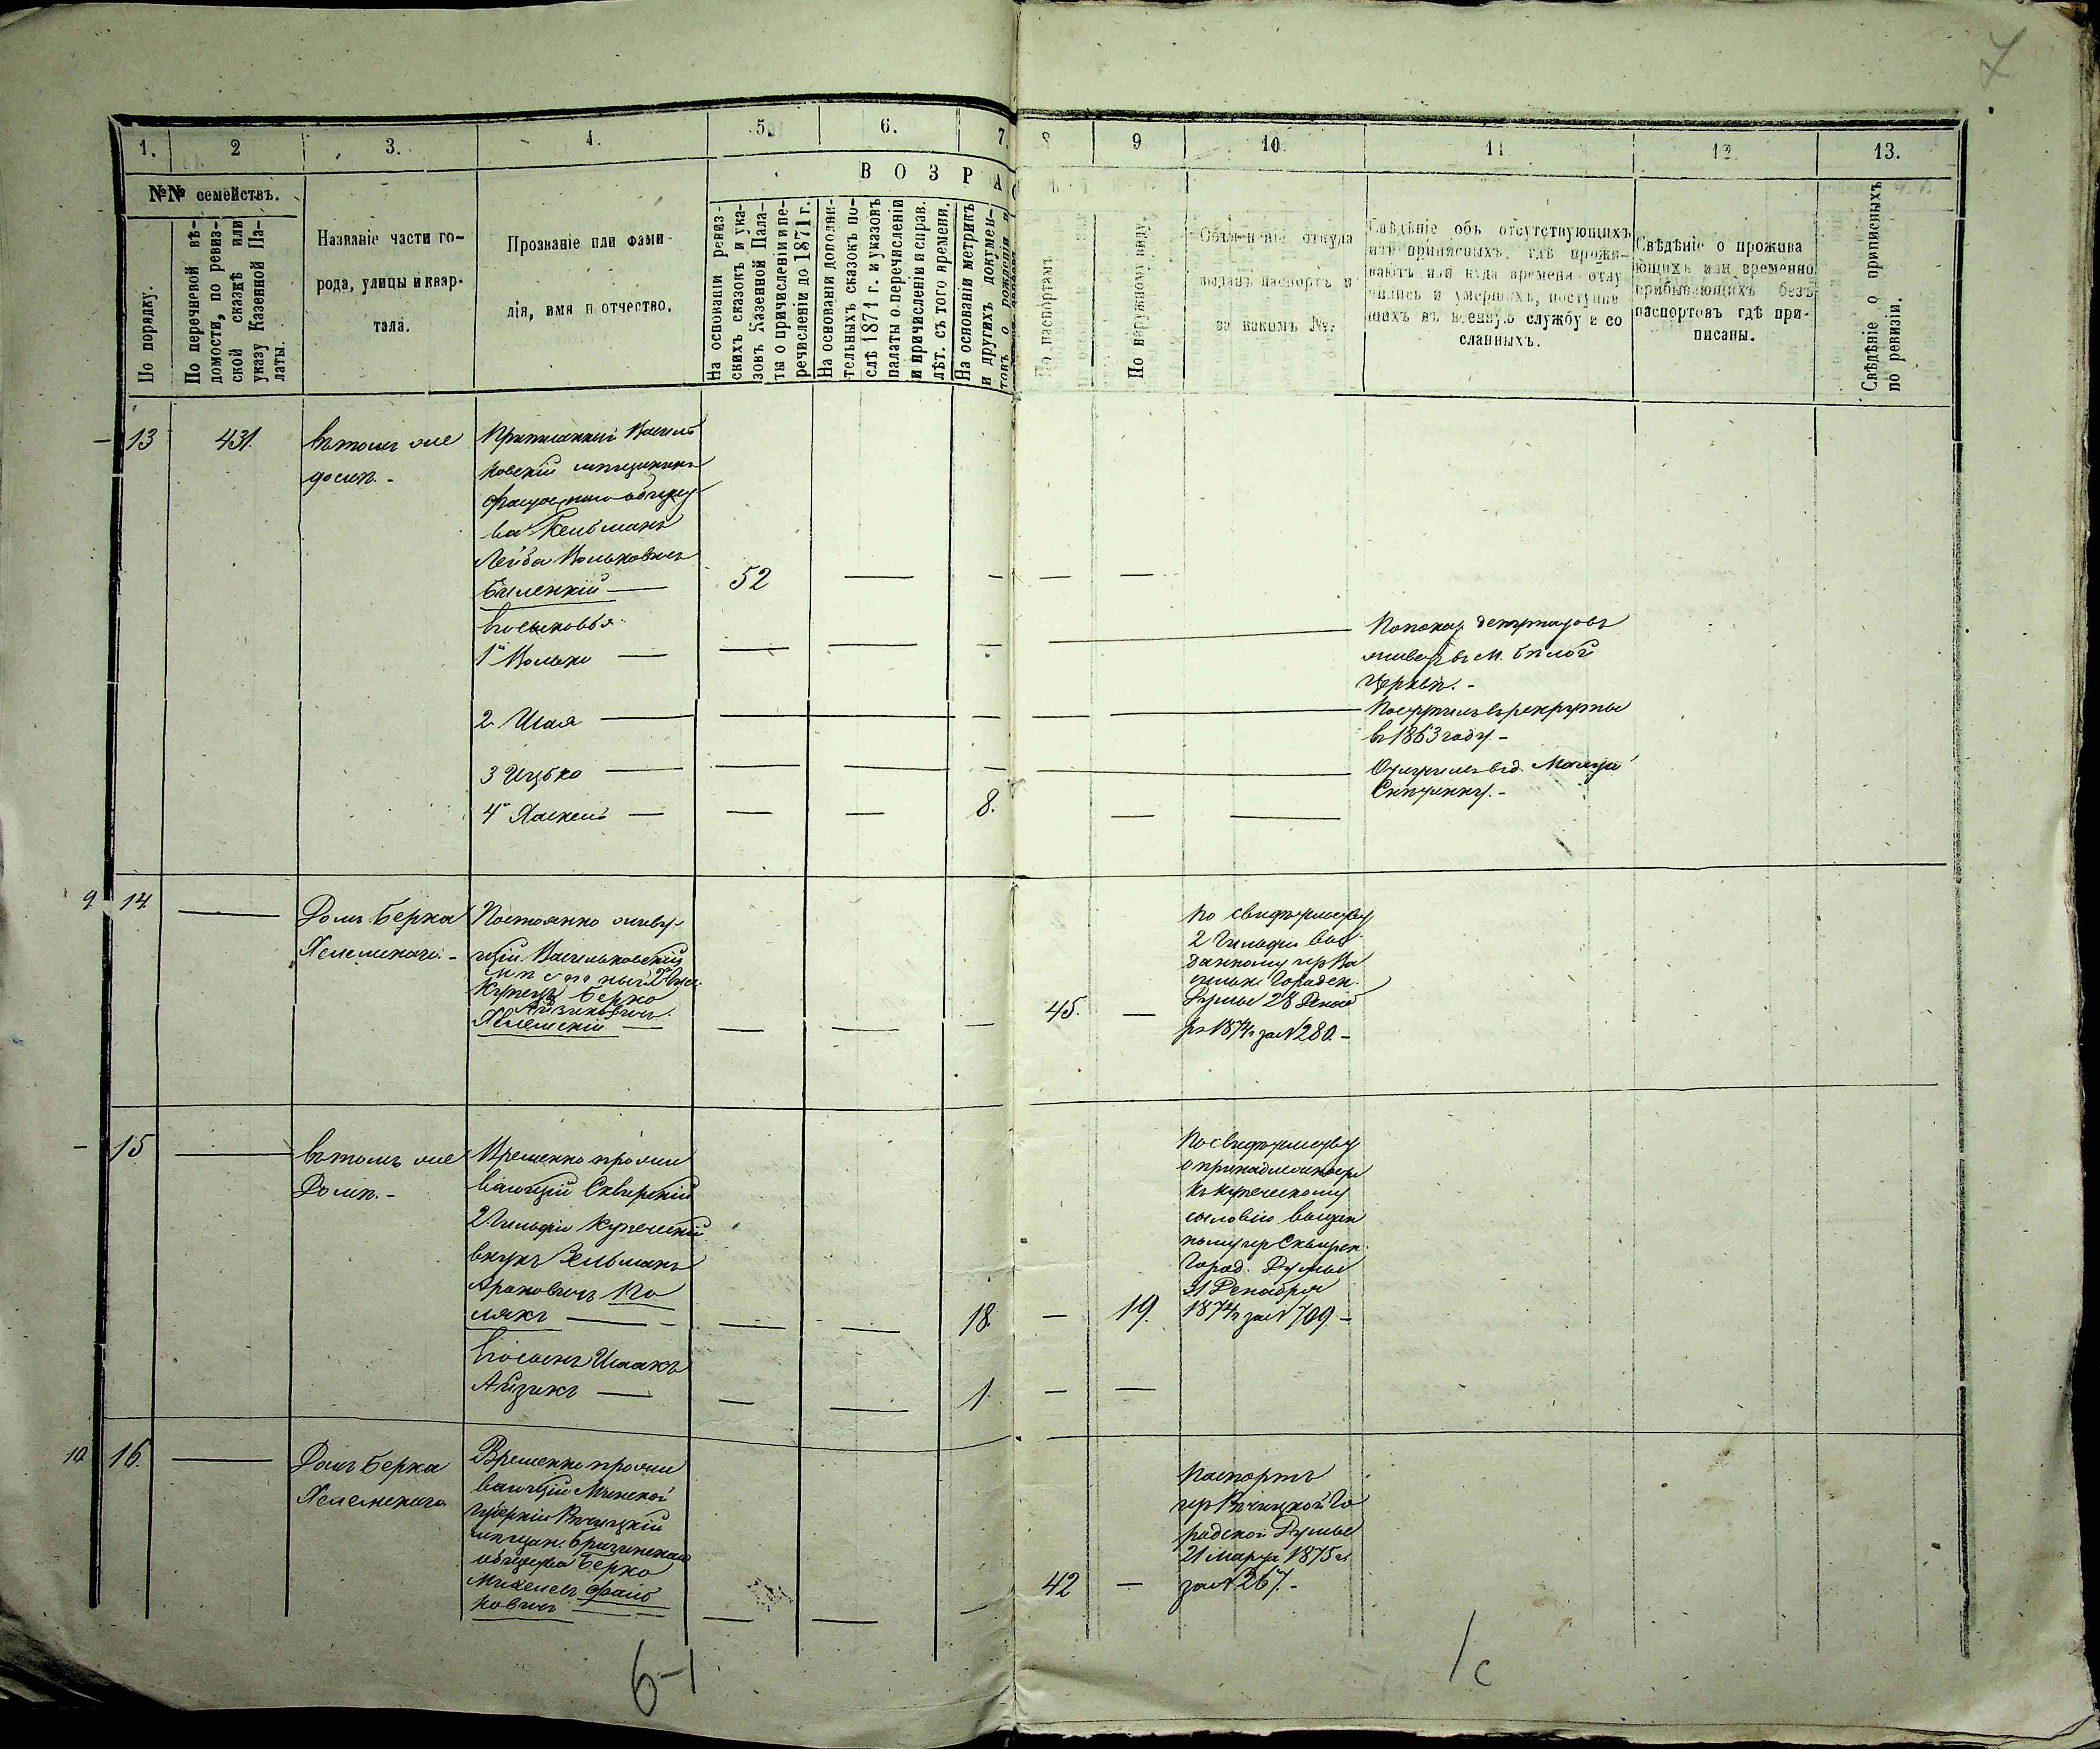 7
1. 2 3. 4. 5. 6. 7. 8 9 10. 11 12. 13.
№№ семействъ.
По порядку.
По перечневой вѣ-
домости, по ревиз-
ской сказкѣ или
указу Казенной Па-
латы.
Названіе части го-
рода, улицы и квар-
тала.
Прозваніе или фами-
лія, имя и отчество.
ВОЗРАС
На основаніи ревиз-
скихъ сказокъ и ука-
зовъ Казенной Пала-
ты о причисленіи и пе-
речисленіи до 1871 г.
На основаніи дополни-
тельныхъ сказокъ по-
слѣ 1871 г. и указовъ
палаты о перечисленіи
и причисленіи и справ.
лѣт. съ того времени.
На основаніи метрикъ
и другихъ докумен-
товъ о рожденіи и
По паспортамъ.
По наружному виду.
Объясненіе откуда
выданъ паспортъ и
за какимъ №.
Свѣдѣніе объ отсутствующихъ
изъ приписныхъ, гдѣ прожи-
ваютъ или куда времена отлу
чились и умершихъ, поступив
шихъ въ военную службу и со
сланныхъ.
Свѣдѣніе о прожива
ющихъ или временно
прибывающихъ безъ
паспортовъ гдѣ при-
писаны.
Свѣдѣніе о приписныхъ
по ревизіи.
13 431. въ томъ же
домѣ.-
Приписанный Василь
ковскій мѣщанинъ
общест
ва Кельманъ
Лейба Вольковичъ
Биленкій 52
Его сыновья
1й Волько
По показ.
живетъ въ М. Бѣлой
Церкви.-
2 Шая
Поступилъ въ рекруты
въ 1863 году.-
3 Ицько
4й Хаскель 8.
9 14 Домъ Берка
Хемскаго.-
Постоянно живу-
щій Васильковскій
2й Гил.
Купецъ Берко
Айзиковичъ
45.
По свидѣтельству
2 Гильдіи вы
данному изъ Ва
сильк. Городск.
Думы 28 Декаб
ря 1874г за №280.-
15 въ томъ же
Домѣ.-
Временно прожи
вающій Сквирскій
2 Гильдіи Купеческій
внукъ Зельманъ
Ароновичъ По
лякъ 18. 19.
По свидѣтельству
о принадлежности
къ купеческому
сословію выдан
ному изъ Сквирск.
Город. Думы
31 Декабря
1874г за №709.-
Его сынъ Исаакъ
Айзикъ 1.
10 16. Домъ Берка
Хемскаго
Временно прожи
вающій Минской
Губерніи Рѣчицкій
мѣщан. Брагинскаго
общества Берко
Михелевъ Фай
ковичъ 42
Паспортъ
изъ Рѣчицкой Го
родской Думы
21 Марта 1875 г.
за №267.-
6-1
1с